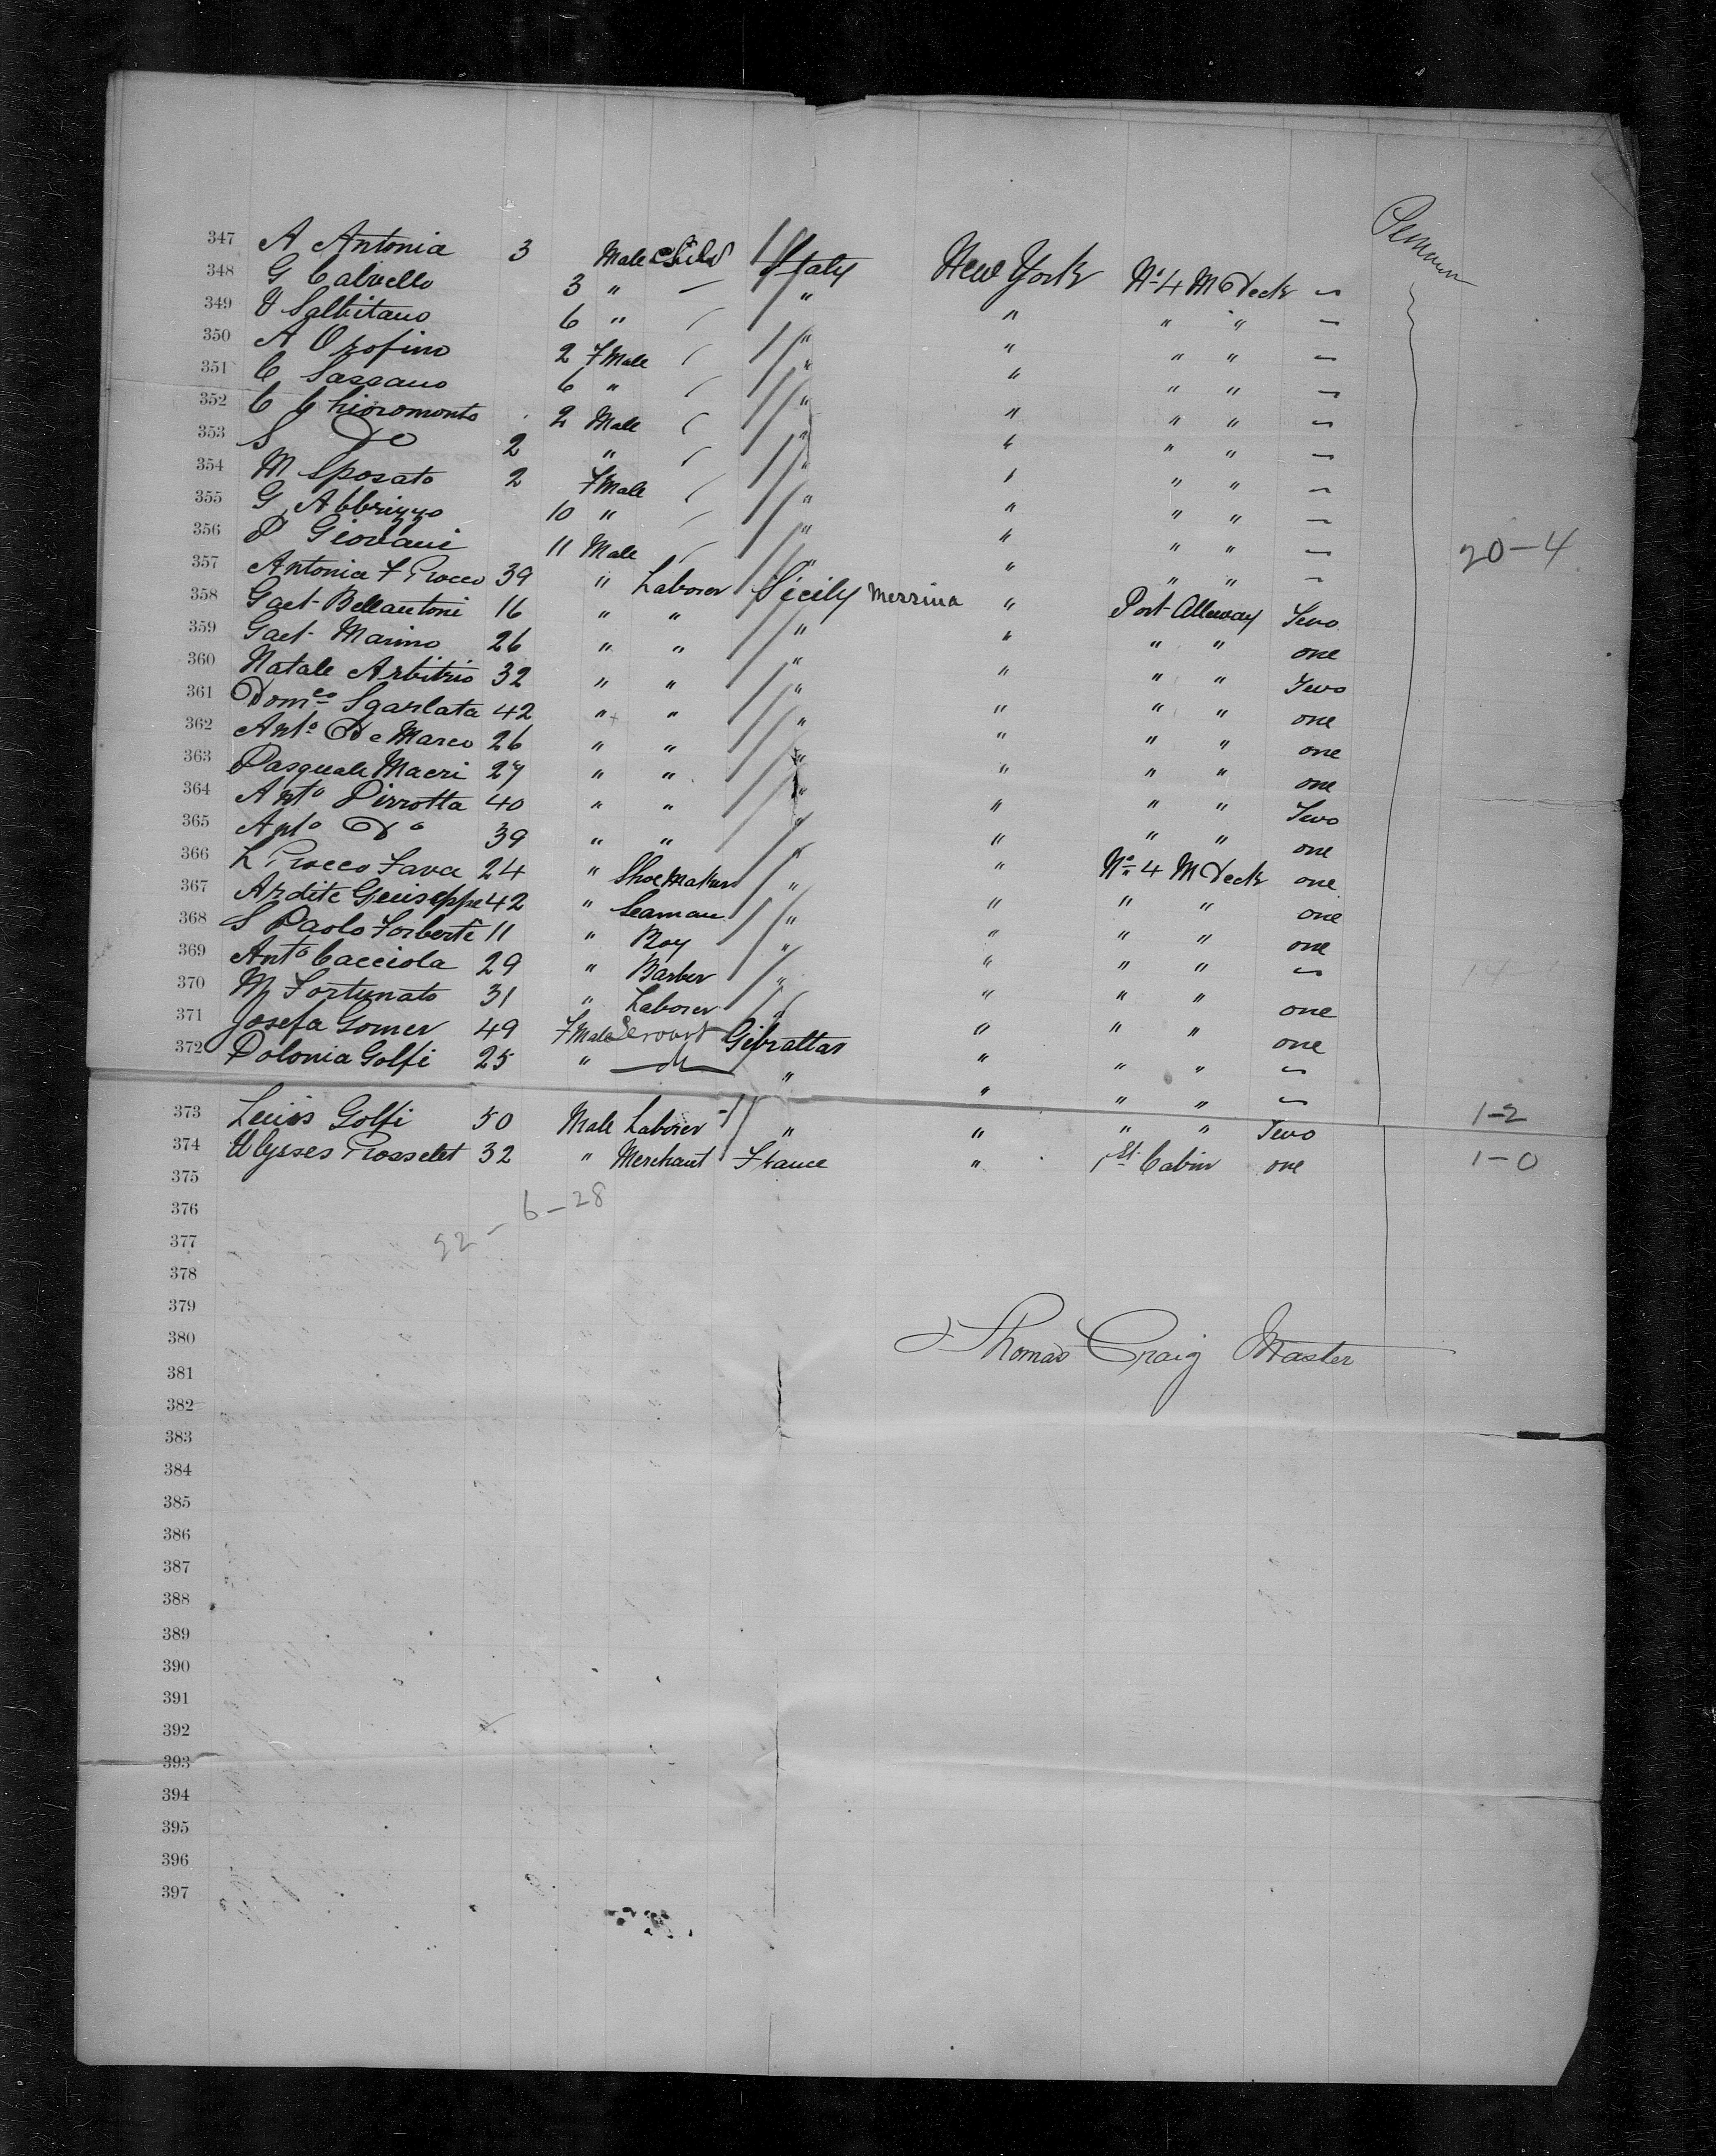 Perman
347 A Antonia 3 Male Child Italy New York No 4 M Deck ~
348 G Calviello 3 " — " " " " ~
349 V Salbitano 6 " " " " " ~
350 A Orofino 2 F Male " " " " ~
351 C Sassano 6 " " " " " ~
352 C Chioromonto 2 Male " " " " ~
353 S Do 2 " " " " " ~
354 M Sposato 2 F Male " " " " ~
355 G Abbrizzo 10 " " " " " ~
356 P Giovani 11 Male " " " " ~ 20-4
357 Antonia F Rocco 39 " Laborer Sicily Messina " Port Alleway Two
358 Gaet Bellantoni 16 " " " " " " one
359 Gaet Marino 26 " " " " " " Two
360 Natale Arbitrio 32 " " " " " " one
361 Domco Sgarlata 42 " " " " " " one
362 Anto De Marco 26 " " " " " " one
363 Pasquale Macri 27 " " " " " " Two
364 Anto Pirrotta 40 " " " " " " one
365 Anto Do 39 " " " " No 4 M Deck one
366 L Rocco Fava 24 " Shoemaker " " " " one
367 Ardite Geuiseppe 42 " Seaman " " " " one
368 S Paolo Forberte 11 " Boy " " " " ~
369 Anto Cacciola 29 " Barber " " " " one 14
370 M Fortunato 31 " Laborer " " " " one
371 Josefa Gomer 49 F Male Servant Gibraltar " " " ~
372 Polonia Golfi 25 " " " " " ~
373 Leuis Golfi 50 Male Laborer " " " " Two 1-2
374 Ulysses Rosselet 32 " Merchant France " 1st Cabin one 1-0
375
376
92-6-28
377
378
379
380 Thomas Craig Master
381
382
383
384
385
386
387
388
389
390
391
392
393
394
395
396
397